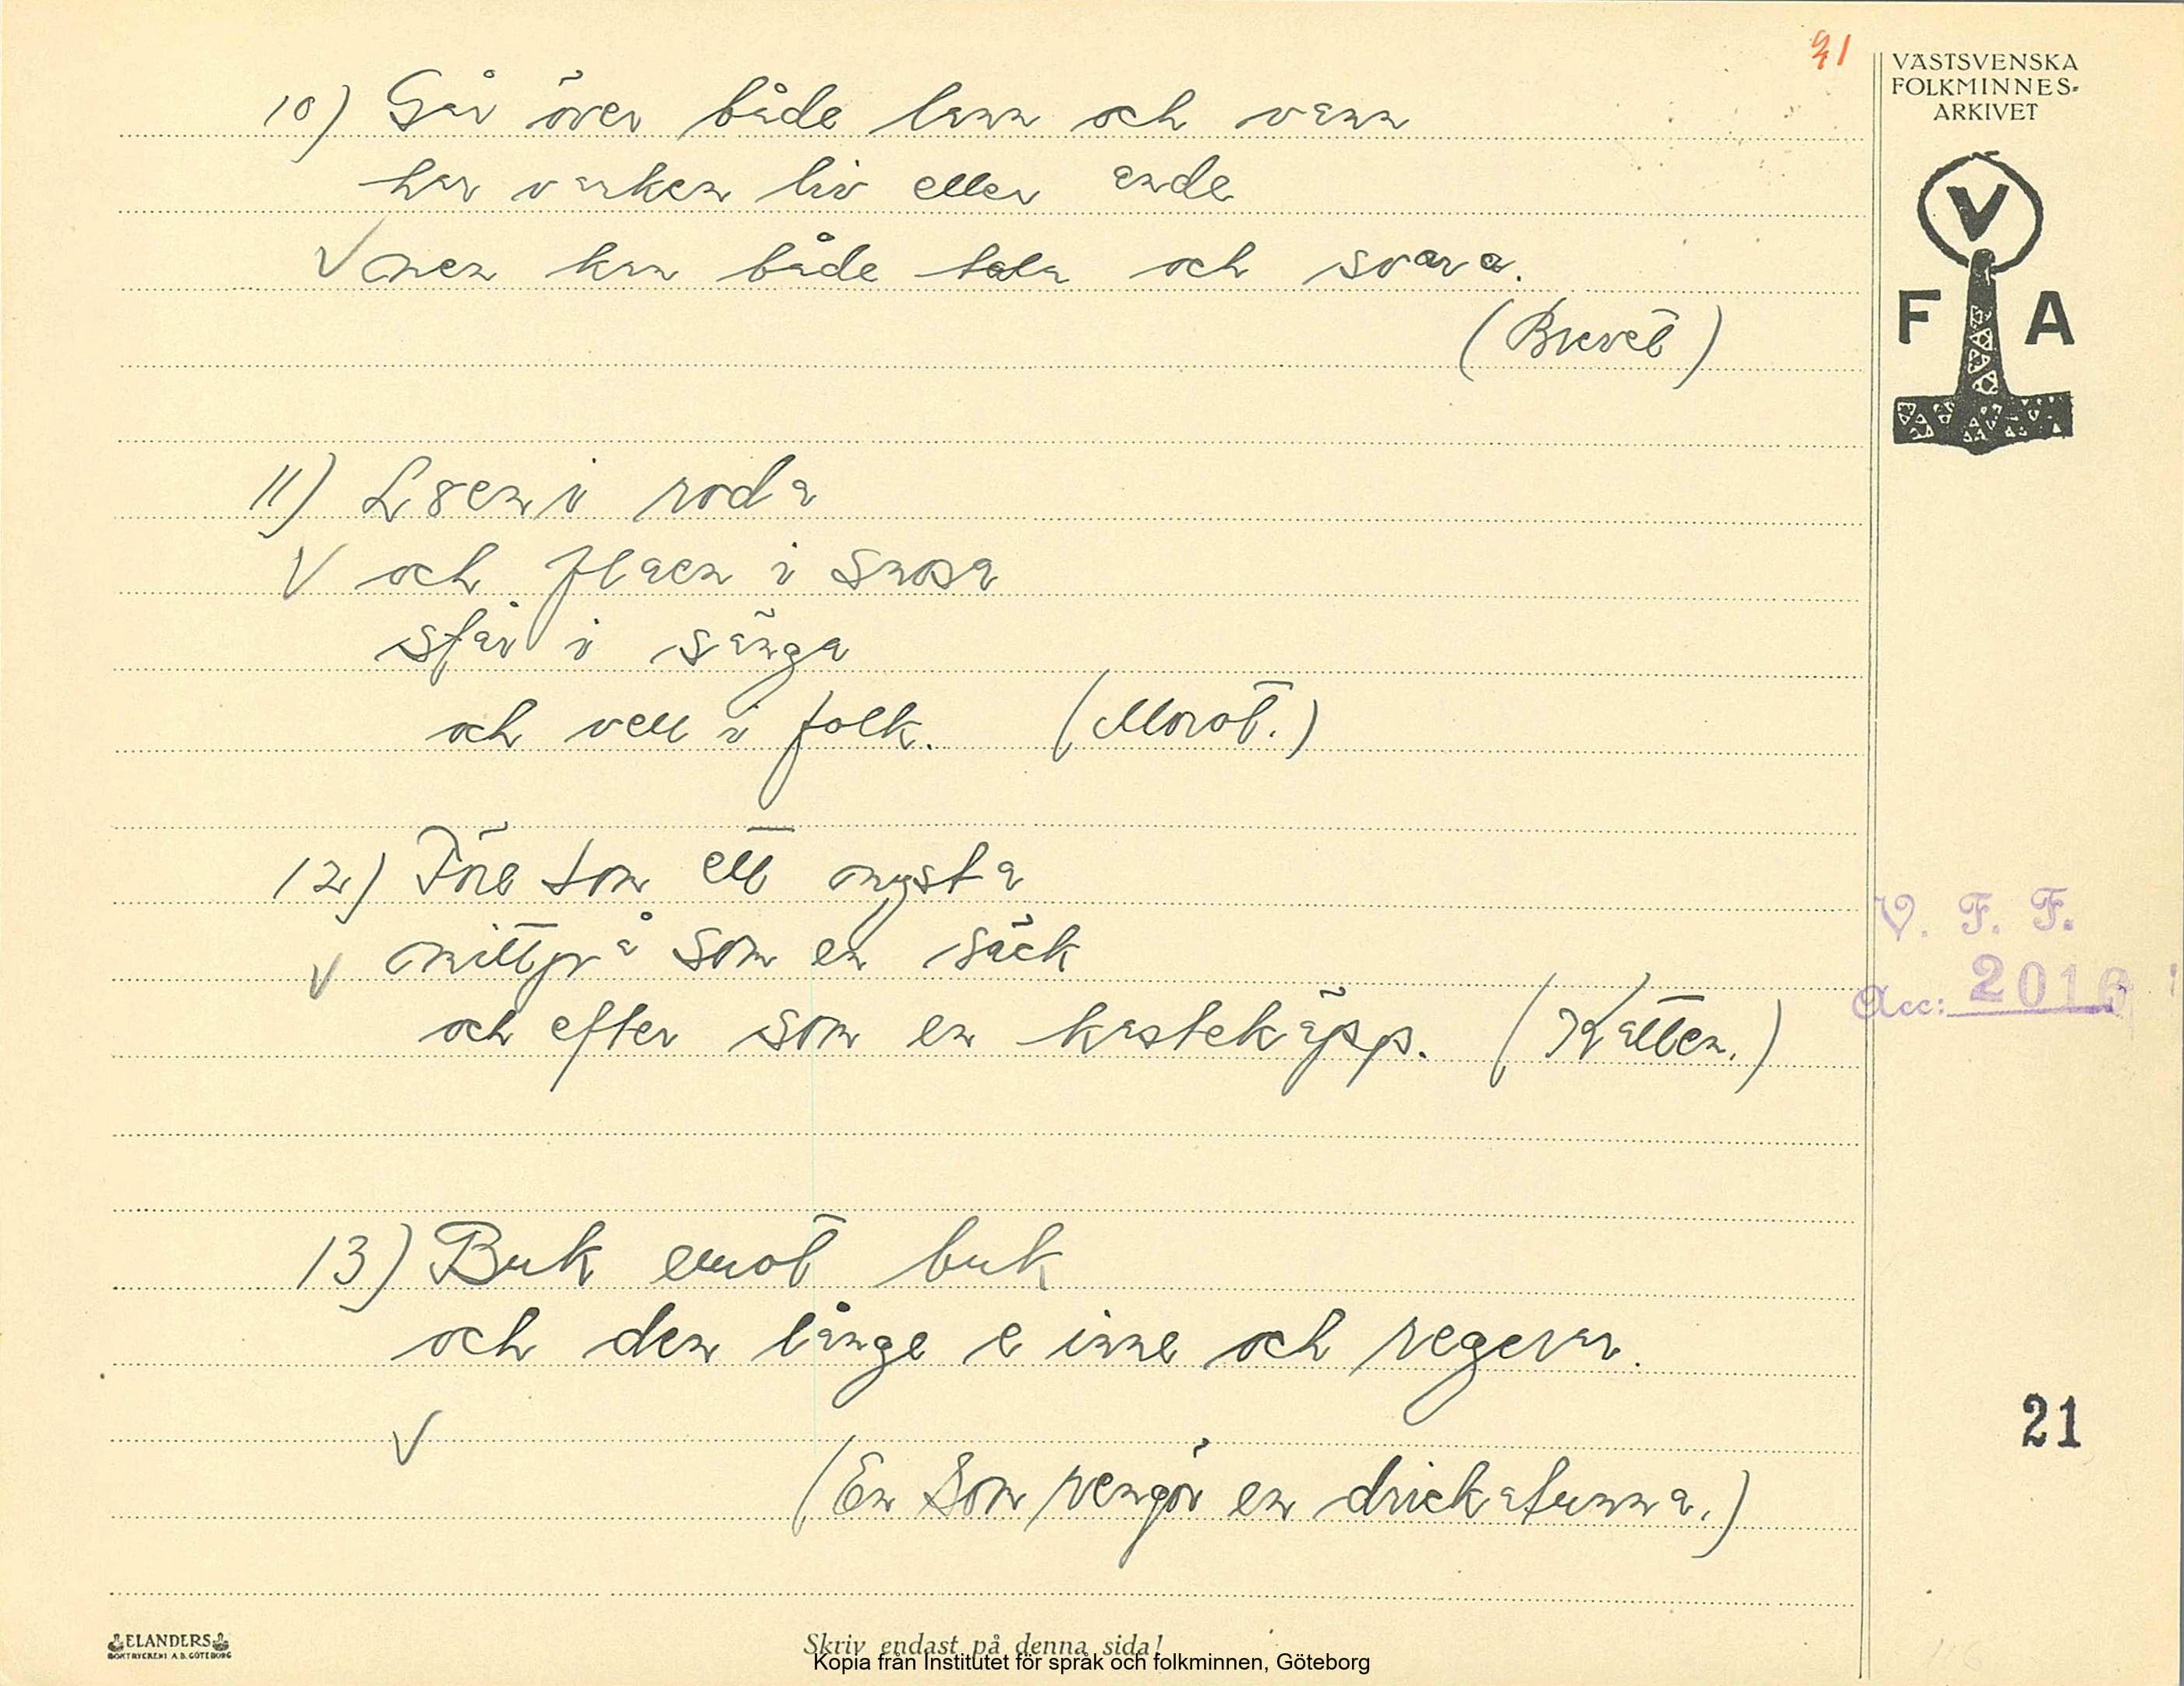 21
VÄSTSVENSKA
FOLKMINNES-
ARKIVET
V
F A
10) Går över både lann och vann
har varken liv eller ande
V men kan både tala och svara.
(Brevet)
11) L8en i roda
V och flaen i snosa
står i sänga
och vell i folk. (Morot.)
12) Före som ett nysta
V mittpå som en säck
och efter som en kastekäpp. (Katten.)
V. F. F.
Acc: 2016
13) Buk emot buk
och den långe e inne och regerar.
V
21
(En som rengör en dricka tunna.)
ELANDERS
BOKTRYCKERI A.B. GÖTEBORG
Skriv endast på denna sida!
Kopia från Institutet för språk och folkminnen, Göteborg